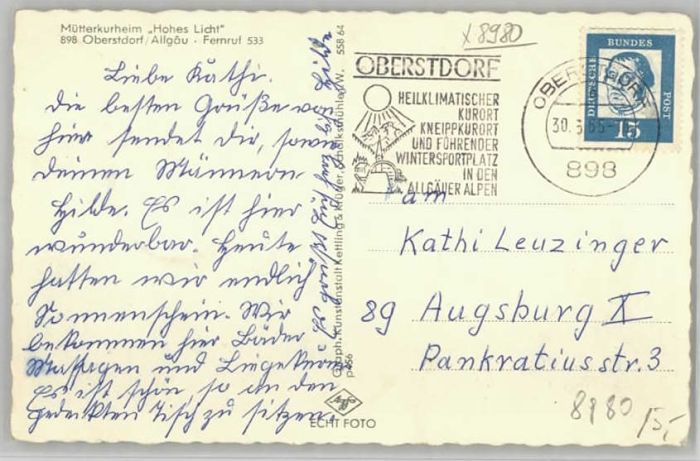 Mütterkurheim „Hohes Licht"
898 Oberstdorf/Allgäu · Fernruf 533
Liebe Käthi.
Die besten Grüße von
hier sendet dir, sowie
deinen Männern
Hilde. Es ist hier
wunderbar. Heute
hatten wir endlich
Sonnenschein. Wir
bekommen hier Bäder
Massagen und Liegekuren
Es ist schön so an den
gedeckten Tisch zu sitzen.
Es grüßt Euch herzlich Hilde
558 64
Graph. Kunstanstalt Kettling & Krüger, Schalksmühle/W.
p456
Agfa
ECHT FOTO
x 8980
OBERSTDORF
HEILKLIMATISCHER
KURORT
KNEIPPKURORT
UND FÜHRENDER
WINTERSPORTPLATZ
IN DEN
ALLGÄUER ALPEN
OBERSTDORF
30.3.65
898
DEUTSCHE
BUNDES
POST
15
am
Kathi Leuzinger
89 Augsburg X
Pankratiusstr. 3
8980
15,-